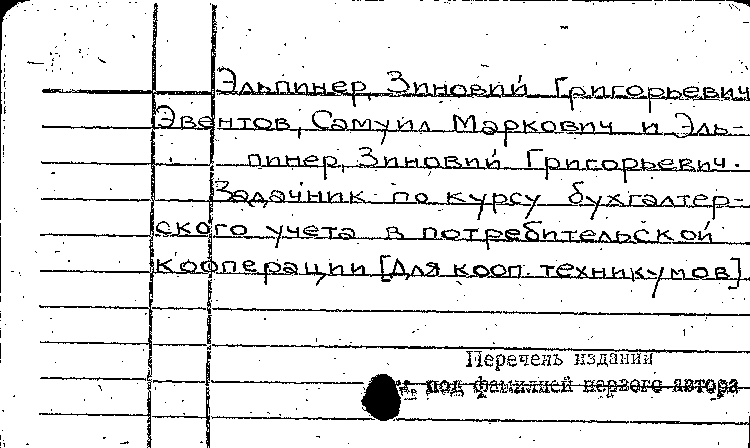 Эльпинер, Зиновий Григорьевич
Эвентов, Самуил Маркович и Эль-
пинер, Зиновий Григорьевич.
Задачник по курсу бухгалтер-
ского учета в потребительской
кооперации [Для кооп. техникумов]
Перечень изданий
см. под фамилией первого автора